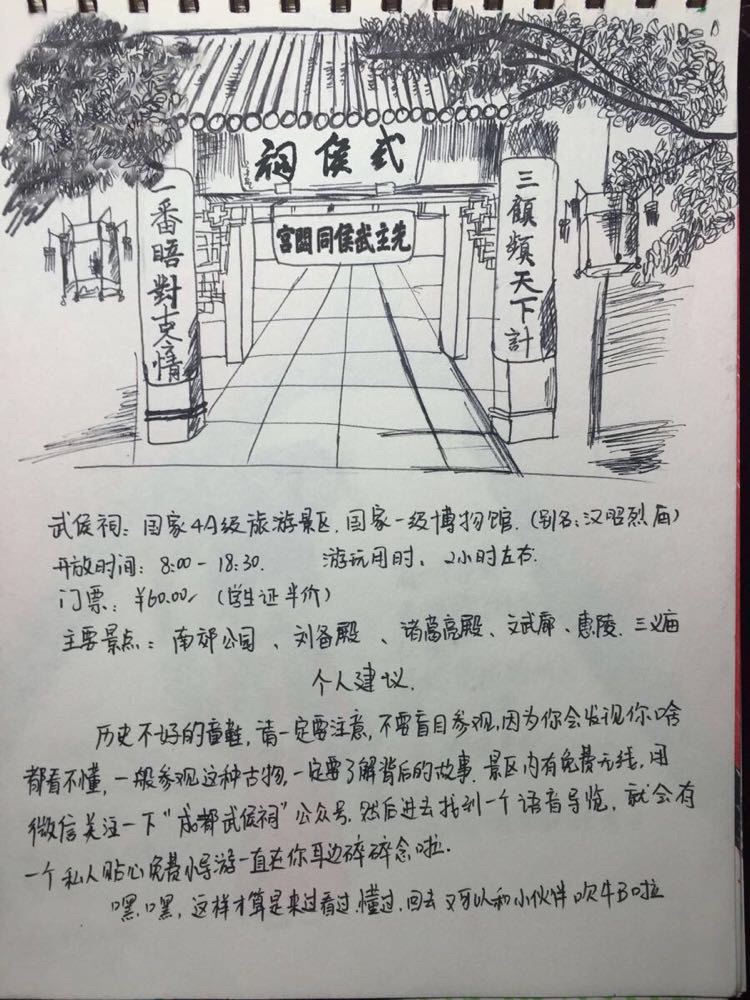 武侯祠
先主武侯同閟宮
三顧頻天下計
一番晤對古今情
武侯祠：国家4A级旅游景区，国家一级博物馆．(别名：汉昭烈庙)
开放时间：8:00-18:30. 游玩用时：2小时左右.
门票：¥60.00/ (学生证半价)
主要景点：南郊公园、刘备殿、诸葛亮殿、文武廊、惠陵．三义庙
个人建议．
历史不好的童鞋，请一定要注意，不要盲目参观，因为你会发现你啥
都看不懂，一般参观这种古物，一定要了解背后的故事．景区内有免费无线，用
微信关注一下“成都武侯祠”公众号．然后进去找到一个语音导览，就会有
一个私人贴心免费小导游一直在你耳边碎碎念啦．
嘿，嘿，这样才算是来过看过．懂过．回去又可以和小伙伴吹牛B啦